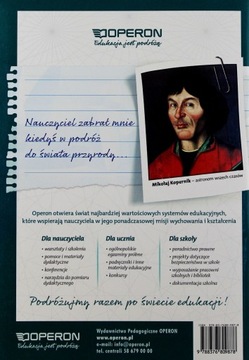 OPERON
Edukacja jest podróżą
Nauczyciel zabrał mnie
kiedyś w podróż
do świata przyrody...
Mikołaj Kopernik – astronom wszech czasów
Operon otwiera świat najbardziej wartościowych systemów edukacyjnych,
które wspierają nauczyciela w jego ponadczasowej misji wychowania i kształcenia
Dla nauczyciela
• warsztaty i szkolenia
• pomoce i materiały
dydaktyczne
• konferencje
• narzędzia do pomiaru
dydaktycznego
Dla ucznia
• ogólnopolskie
egzaminy próbne
• podręczniki i inne
materiały edukacyjne
• konkursy
Dla szkoły
• poradnictwo prawne
• projekty dotyczące
bezpieczeństwa w szkole
• wyposażenie pracowni
szkolnych i bibliotek
• dokumentacja szkolna
Podróżujmy razem po świecie edukacji!
Wydawnictwo Pedagogiczne OPERON
www.operon.pl
e-mail: info@operon.pl
tel. centrali 58 679 00 00